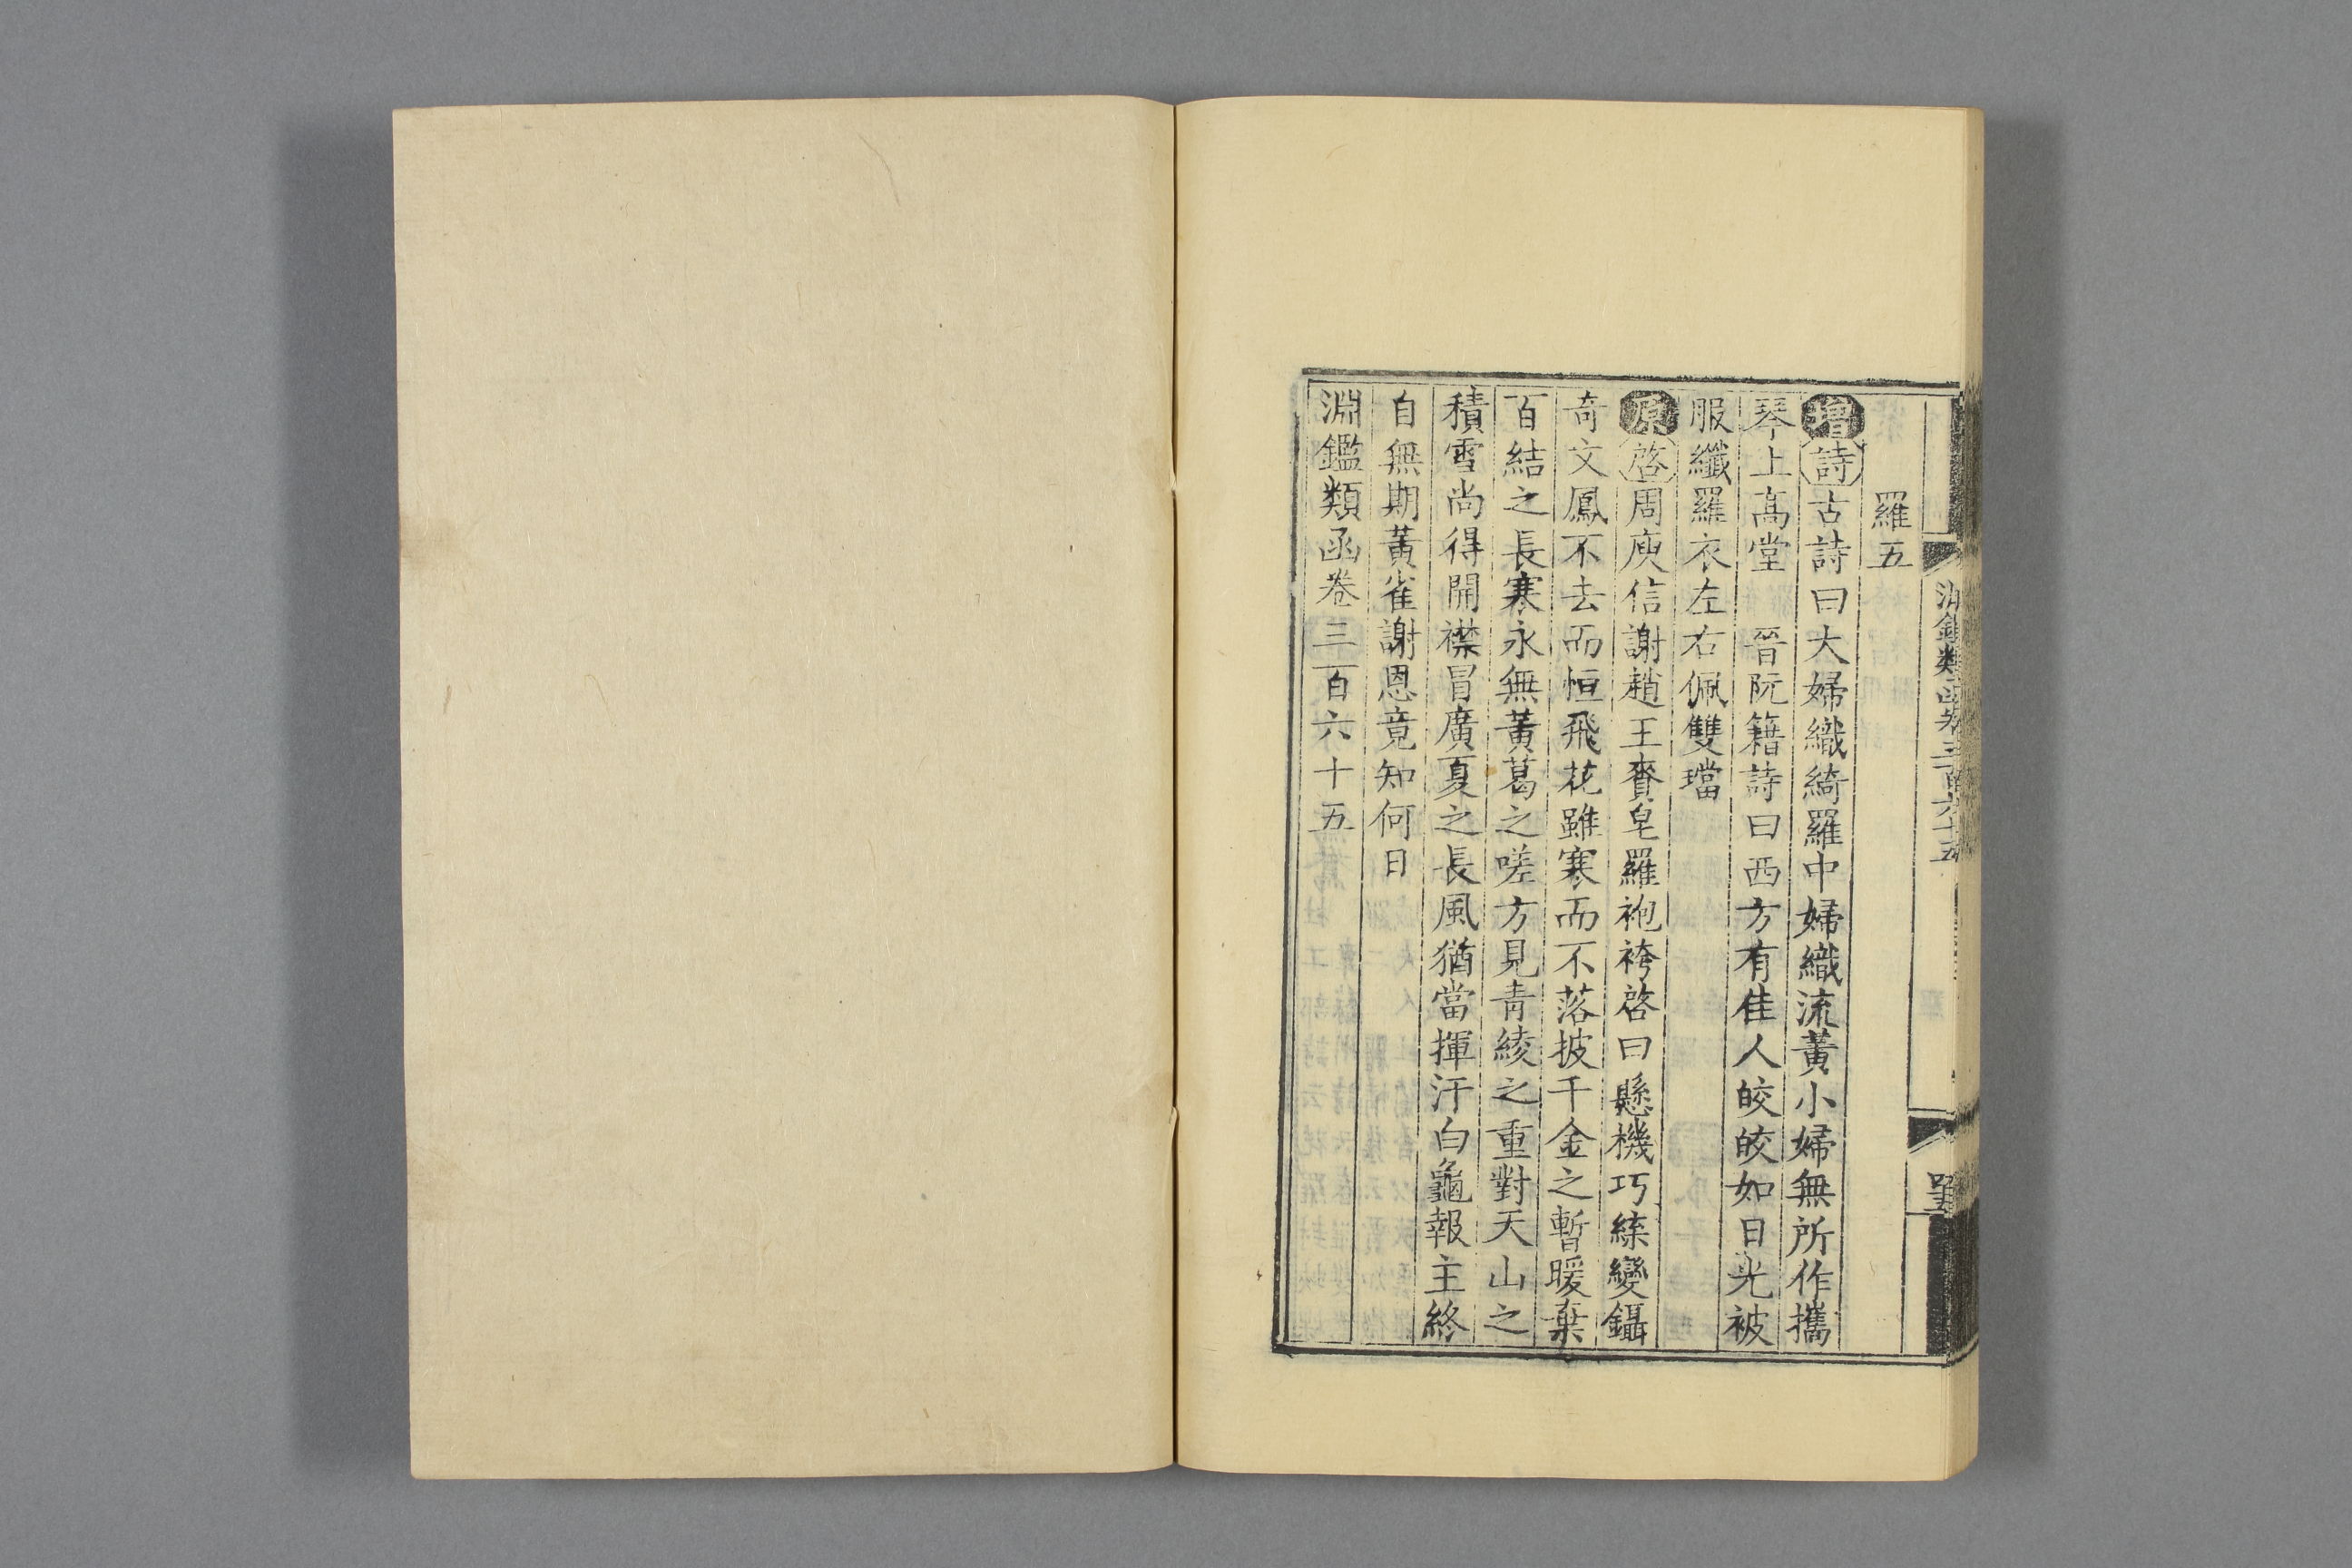 羅五
增詩古詩曰大婦織綺羅中婦織流黃小婦無所作攜
琴上高堂　晉阮籍詩曰西方有佳人皎皎如日光被
服纖羅衣左右佩雙璫
原啓周庾信謝趙王賚皂羅袍袴啓曰懸機巧緤變鑷
奇文鳳不去而恒飛花雖寒而不落披千金之暫暖棄
百結之長寒永無黃葛之嗟方見青綾之重對天山之
積雪尚得開襟冒廣夏之長風猶當揮汗白龜報主終
自無期黃雀謝恩竟知何日
淵鑑類函卷三百六十五